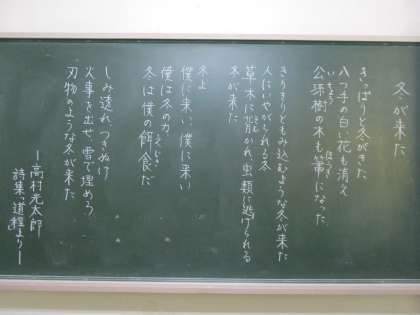 冬が来た
きっぱりと冬がきた
八つ手の白い花も消え
公孫樹の木も箒になった
いちょう
ほうき
きりきりともみ込むような冬が来た
人にいやがられる冬
草木に背かれ、虫類に逃げられる
そむ
冬が来た
冬よ
僕に来い、僕に来い
僕は冬の力、
冬は僕の餌食だ
えじき
しみ透れ、つきぬけ
火事を出せ、雪で埋めろ
刃物のような冬が来た
ー高村光太郎
詩集「道程」よりー